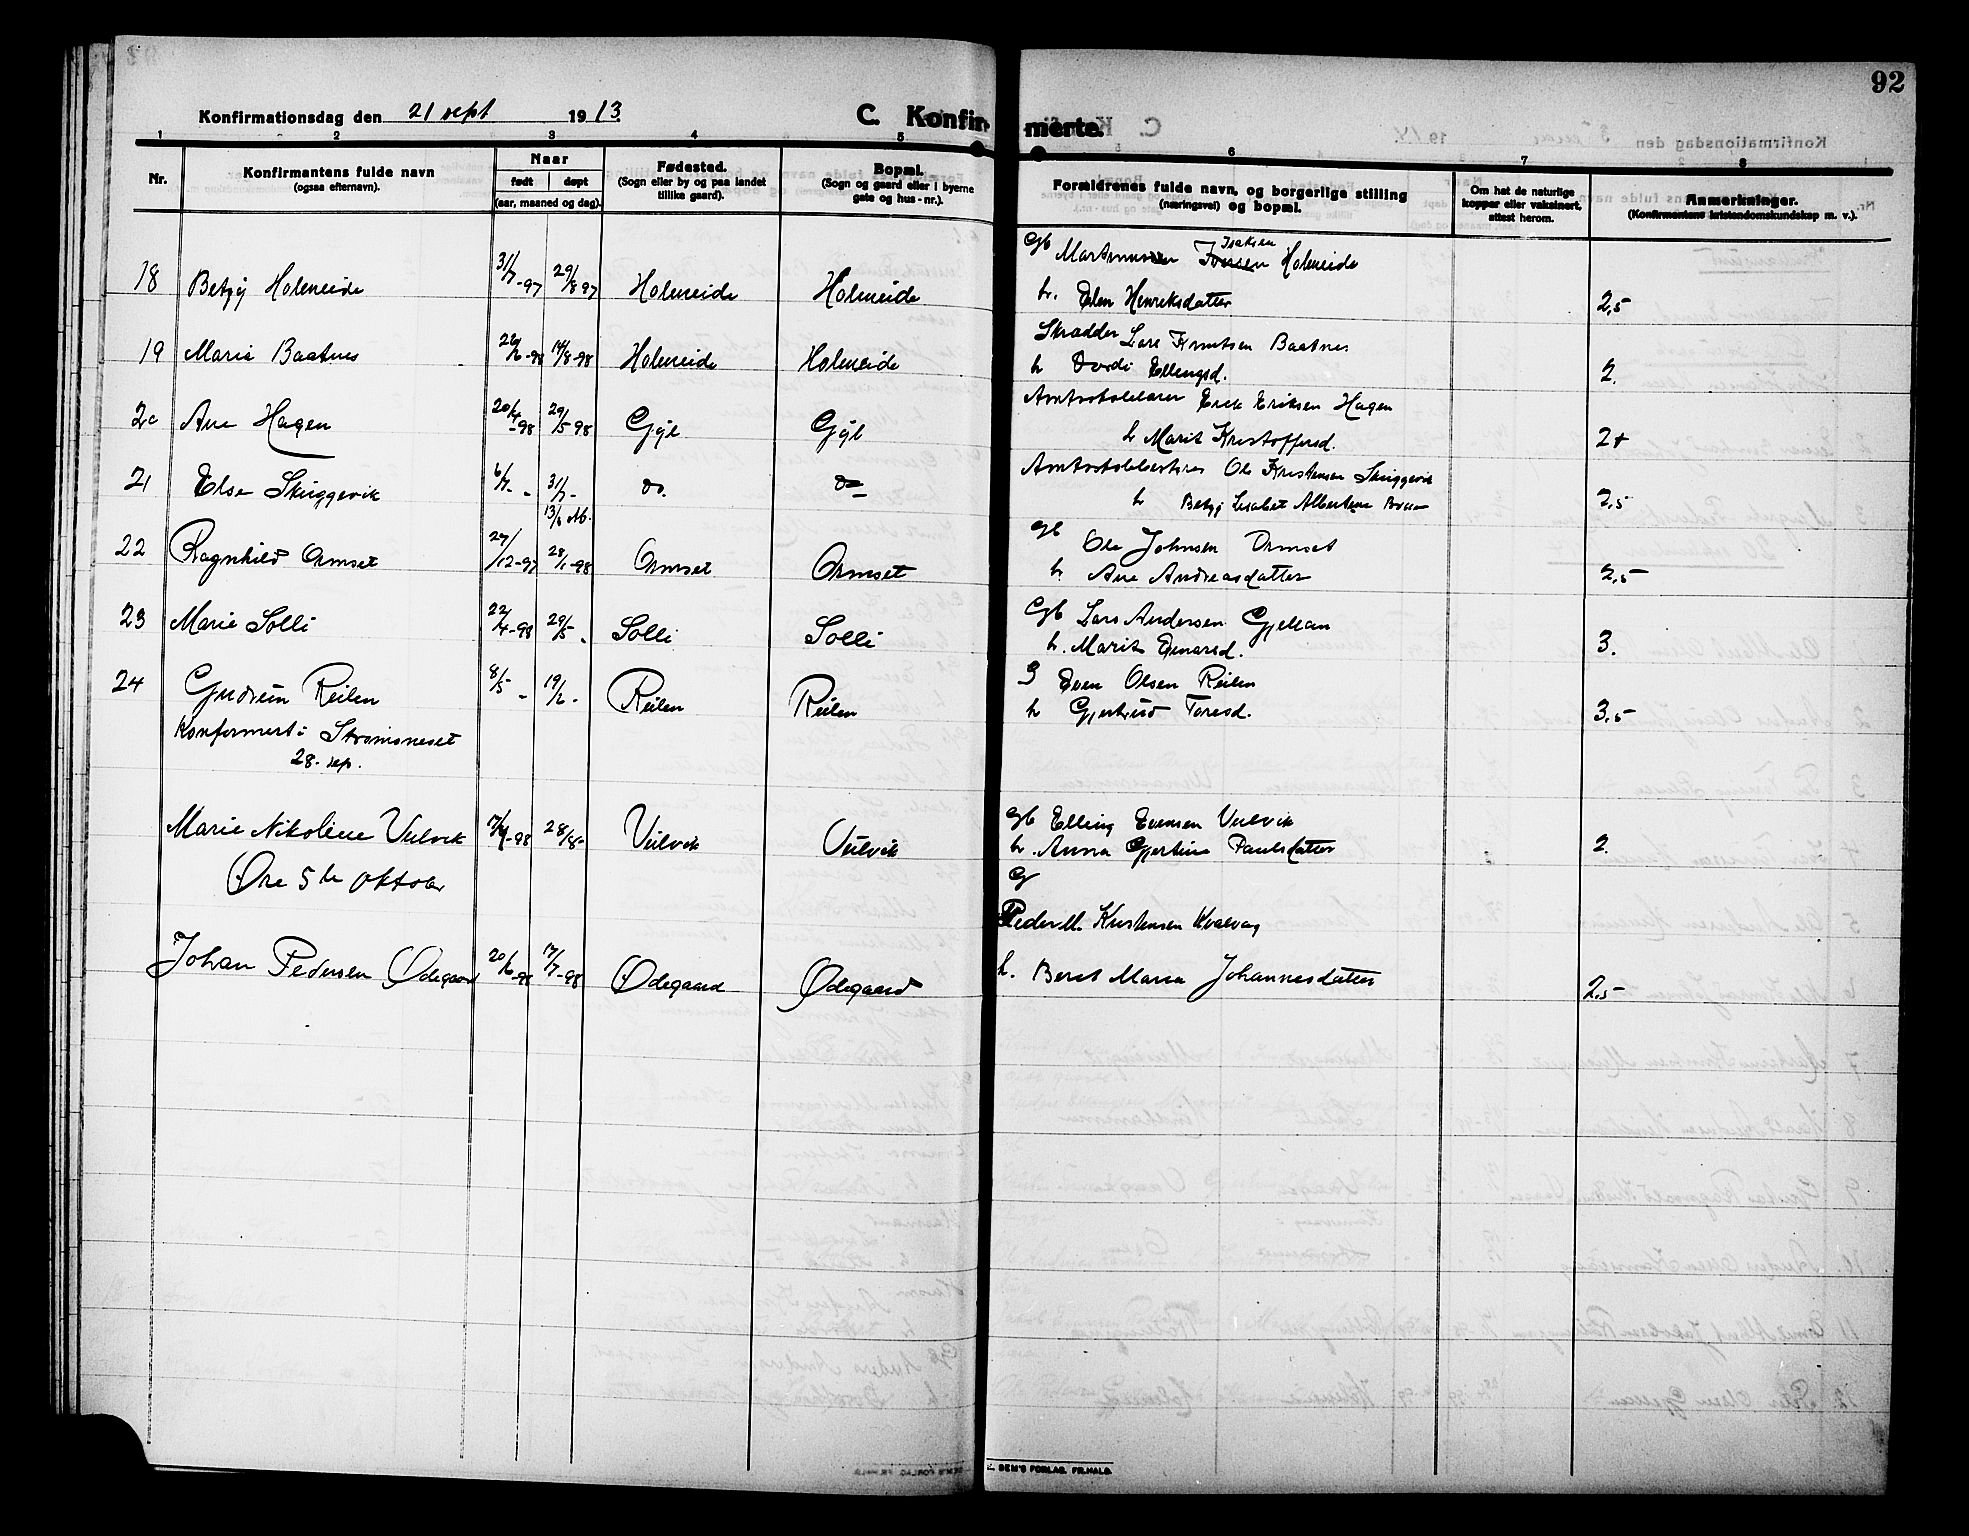 92
Konfirmationsdag den 21 sept 1913.
C. Konfirmerte.
1 2 3 4 5 6 7 8
Nr.
Konfirmantens fulde navn
(ogsaa efternavn).
Naar
født døpt
(aar, maaned og dag).
Fødested.
(Sogn eller by og paa landet
tillike gaard).
Bopæl.
(Sogn og gaard eller i byerne
gate og hus-nr.).
Forældrenes fulde navn, og borgerlige stilling
(næringsvei) og bopæl.
Om hat de naturlige
kopper eller vaksinert,
attest herom.
Anmerkninger.
(Konfirmantens kristendomskundskap m. v.).
Gb Isaksen Holmeide
18 Betzy Holmeide 31/7-97 29/8 97 Holmeide Holmeide h. Elen Henriksdatter 2,5
Skrædder Lars Knutsen Baatnes
19 Marie Baatnes 26/6-98 14/8-98 Holmeide Holmeide h Dordi Ellingsd. 2.
Erik Eriksen Hagen
20 Ane Hagen 20/4-98 29/5 98 Gyl Gyl h Marit Kristoffersd. 2+
Ole Kristensen Skuggevik
21 Else Skuggevik 6/7- - 31/7- do. do h Betzy Lisabet Albertine 2,5
Gb Ole Johnsen Ormset
22 Ragnhild Ormset 27/12-97 28/1-98 Ormset Ormset h. Ane Andreasdatter 2,5
Gb Lars Andersen Gjellan
23 Marie Solli 22/4-98 29/5- - Solli Solli h. Marit Einarsd. 3.
G Even Olsen Reilen
24 Gudrun Reilen 8/5 - 19/6 - Reilen Reilen h Gjertrud Toresd. 3,5
Konfermert i Strømsneset
28. sep.
Gb Elling Evensen Veilvik
Marie Nikoline Veilvik 98 28/8- Veilvik Veilvik h. Anna Gjertine Paulsdatter 2.
Øre 5te oktober
G
Peder M. Kristensen Kvalvag
Johan Pedersen Ødegaard 20/6-98 17/7-98 Ødegaard Ødegaard h. Beret Maria Johannesdatter 2,5
SEM'S FORLAG, FR.HALD.